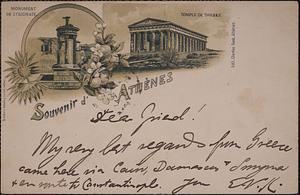 MONUMENT
DE LYSICRATE
TEMPLE DE THESÉE
Souvenir d'ATHÈNES
Dear Fried!
My very last regards from Greece
came here via Cairo, Damascus & Smyrna
& en route to Constantinople.